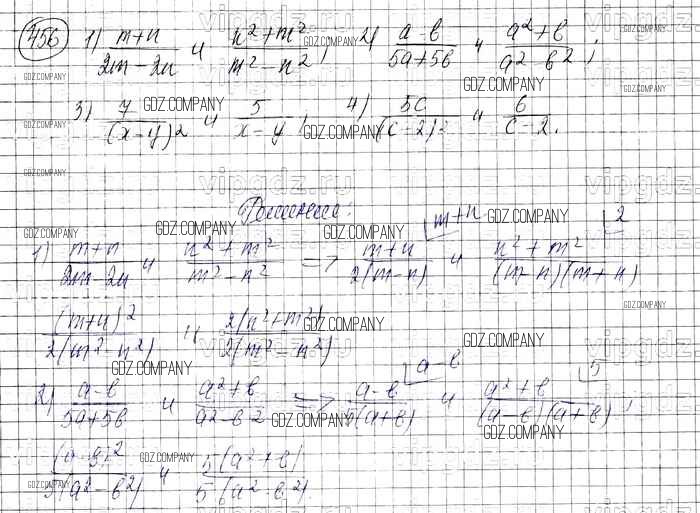 456 1) (m+n)/(2m-2n) и (n²+m²)/(m²-n²); 2) (a-b)/(5a+5b) и (a²+b)/(a²-b²);
3) 7/(x-y)² и 5/(x-y); 4) 5c/(c-2)² и 6/(c-2).
Решение:
1) (m+n)/(2m-2n) и (n²+m²)/(m²-n²) => (m+n)/(2(m-n)) m+n и (n²+m²)/((m-n)(m+n)) 2
(m+n)²/(2(m²-n²)) и 2(n²+m²)/(2(m²-n²))
2) (a-b)/(5a+5b) и (a²+b)/(a²-b²) => (a-b)/(5(a+b)) a-b и (a²+b)/((a-b)(a+b)) 5;
(a-b)²/(5(a²-b²)) и 5(a²+b)/(5(a²-b²)).
GDZ.COMPANY
vipgdz.ru